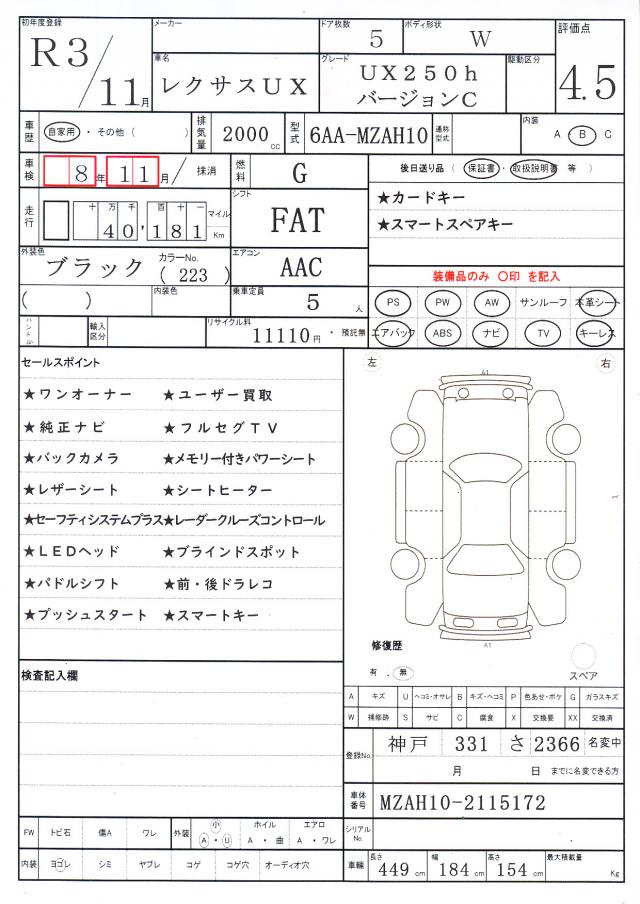 初年度登録 R3/11月
メーカー
ドア枚数 5
ボディ形状 W
評価点 4.5
車名 レクサスUX
グレード UX250h バージョンC
駆動区分
車歴 自家用・その他( )
排気量 2000cc
型式 6AA-MZAH10
通称型式
内装 A・B C
車検 8年11月/ 抹消
燃料 G
後日送り品 (保証書・取扱説明書 等 )
★カードキー
★スマートスペアキー
走行 十万千百十一 40,181 マイル Km
シフト FAT
外装色 ブラック カラーNo. ( 223 )
エアコン AAC
装備品のみ 〇印 を記入
( )
内装色
乗車定員 5人
PS PW AW サンルーフ 本革シート
エアバック ABS ナビ TV キーレス
ハンドル
輸入区分
リサイクル料 11110円・預託無
セールスポイント
★ワンオーナー ★ユーザー買取
★純正ナビ ★フルセグTV
★バックカメラ ★メモリー付きパワーシート
★レザーシート ★シートヒーター
★セーフティシステムプラス★レーダークルーズコントロール
★LEDヘッド ★ブラインドスポット
★パドルシフト ★前・後ドラレコ
★プッシュスタート ★スマートキー
左 右
A1
A1
修復歴
有 . 無
スペア
検査記入欄
A キズ U ヘコミ・オサレ B キズ・ヘコミ P 色あせ・ボケ G ガラスキズ
W 補修跡 S サビ C 腐食 X 交換要 XX 交換済
登録No. 神戸 331 さ 2366 名変中
月 日 までに名変できる方
車体番号 MZAH10-2115172
シリアルNo.
FW トビ石 傷A ワレ 外装 小 A・U ホイル A・曲 エアロ A・ワレ
内装 ヨゴレ シミ ヤブレ コゲ コゲ穴 オーディオ穴
車輛 長さ 449cm 幅 184cm 高さ 154cm 最大積載量 Kg